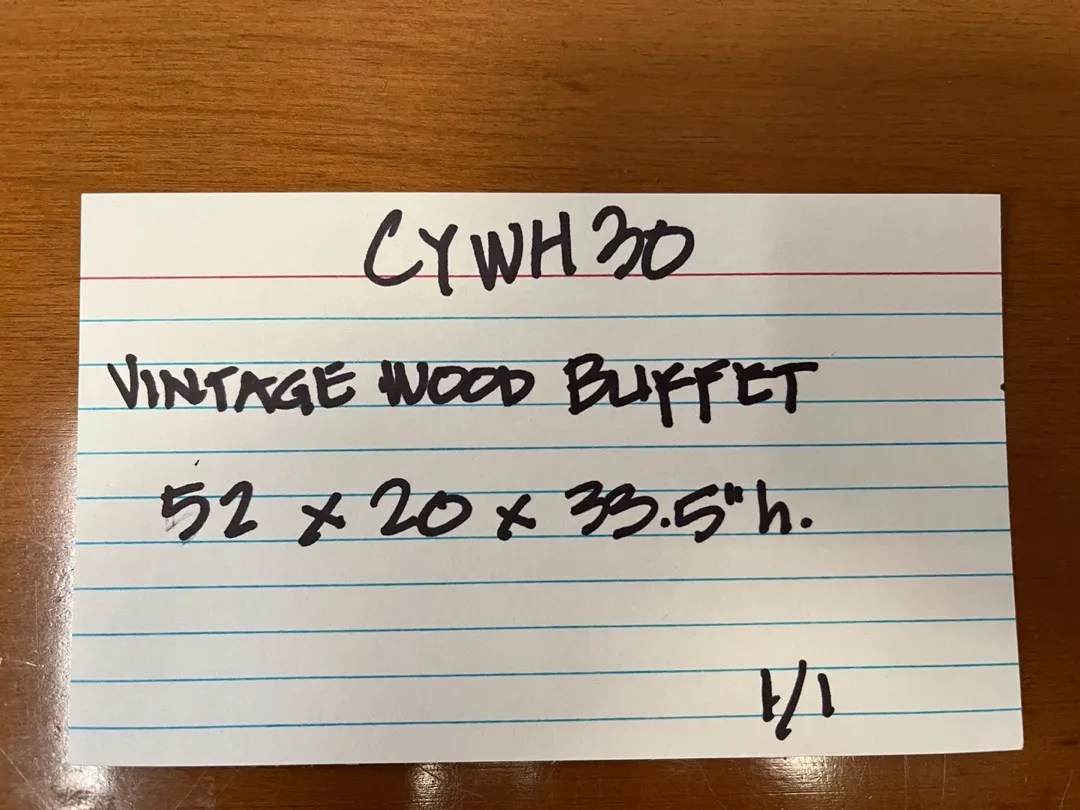 CYWH30
VINTAGE WOOD BUFFET
52 x 20 x 33.5" h.
1/1